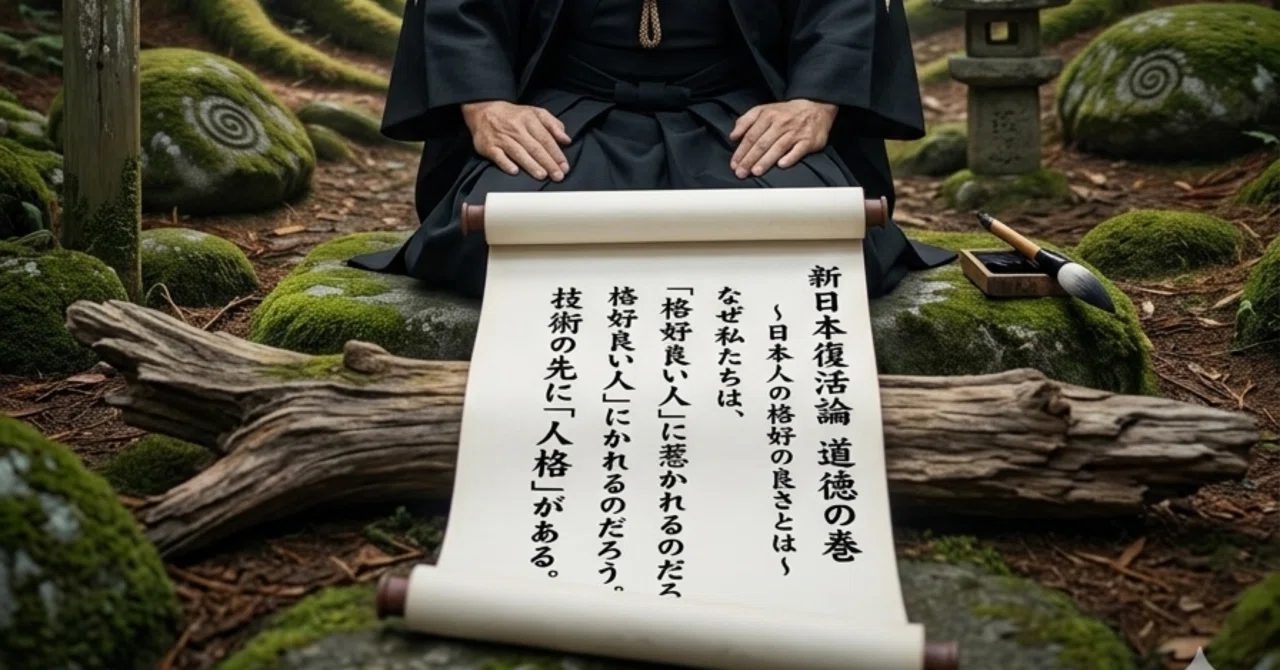 新日本復活論 道徳の巻
～日本人の格好の良さとは～
なぜ私たちは、
「格好良い人」に惹かれるのだろ
格好良い人」にかれるのだろう。
技術の先に「人格」がある。